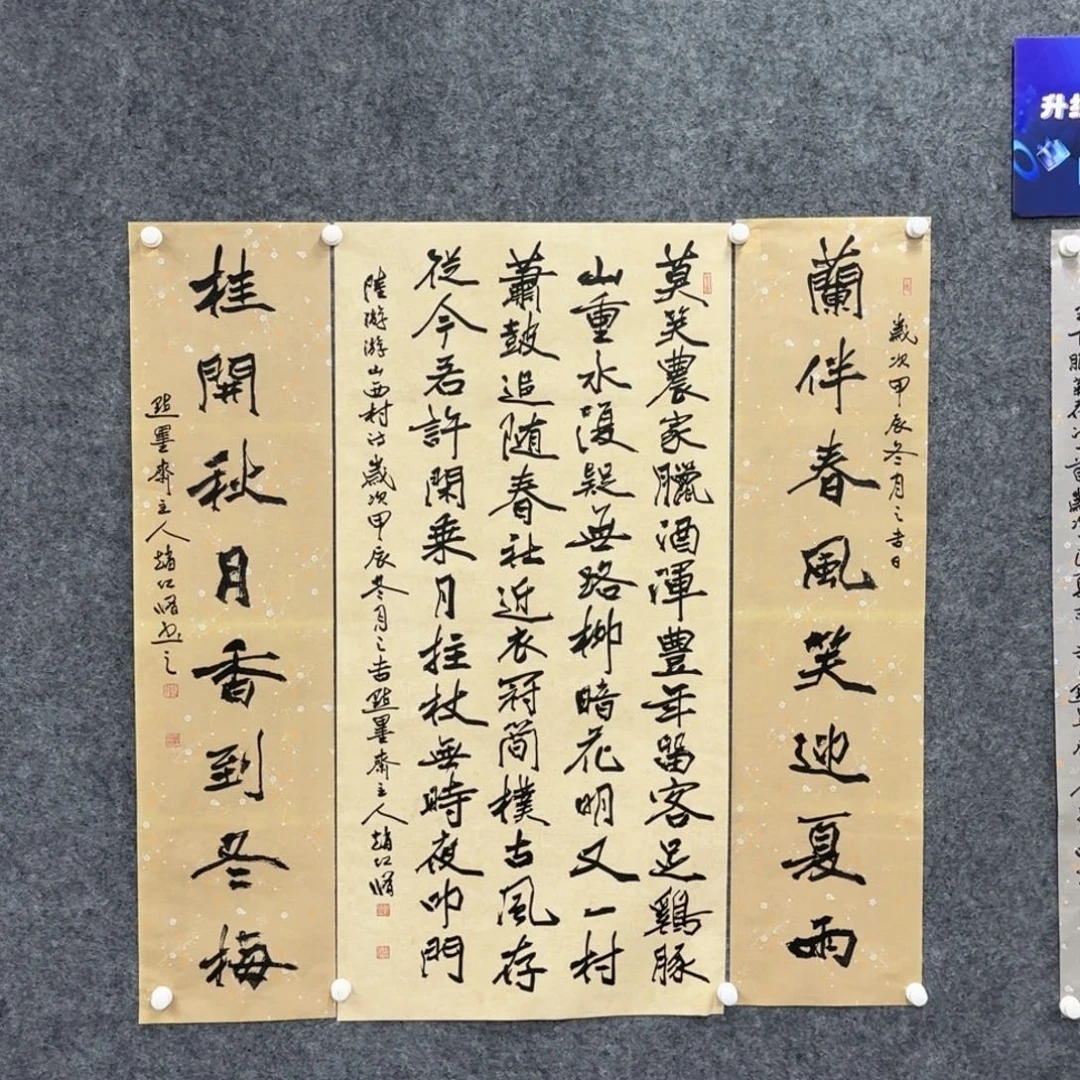 歲次甲辰冬月之吉日
蘭伴春風笑迎夏雨
莫笑農家臘酒渾豐年留客足鷄豚
山重水復疑無路柳暗花明又一村
蕭鼓追随春社近衣冠簡樸古風存
從今若許閑乘月拄杖無時夜叩門
陸游游山西村詩歲次甲辰冬月之吉點墨齋主人趙仁
桂開秋月香到冬梅
點墨齋主人趙仁書之
升